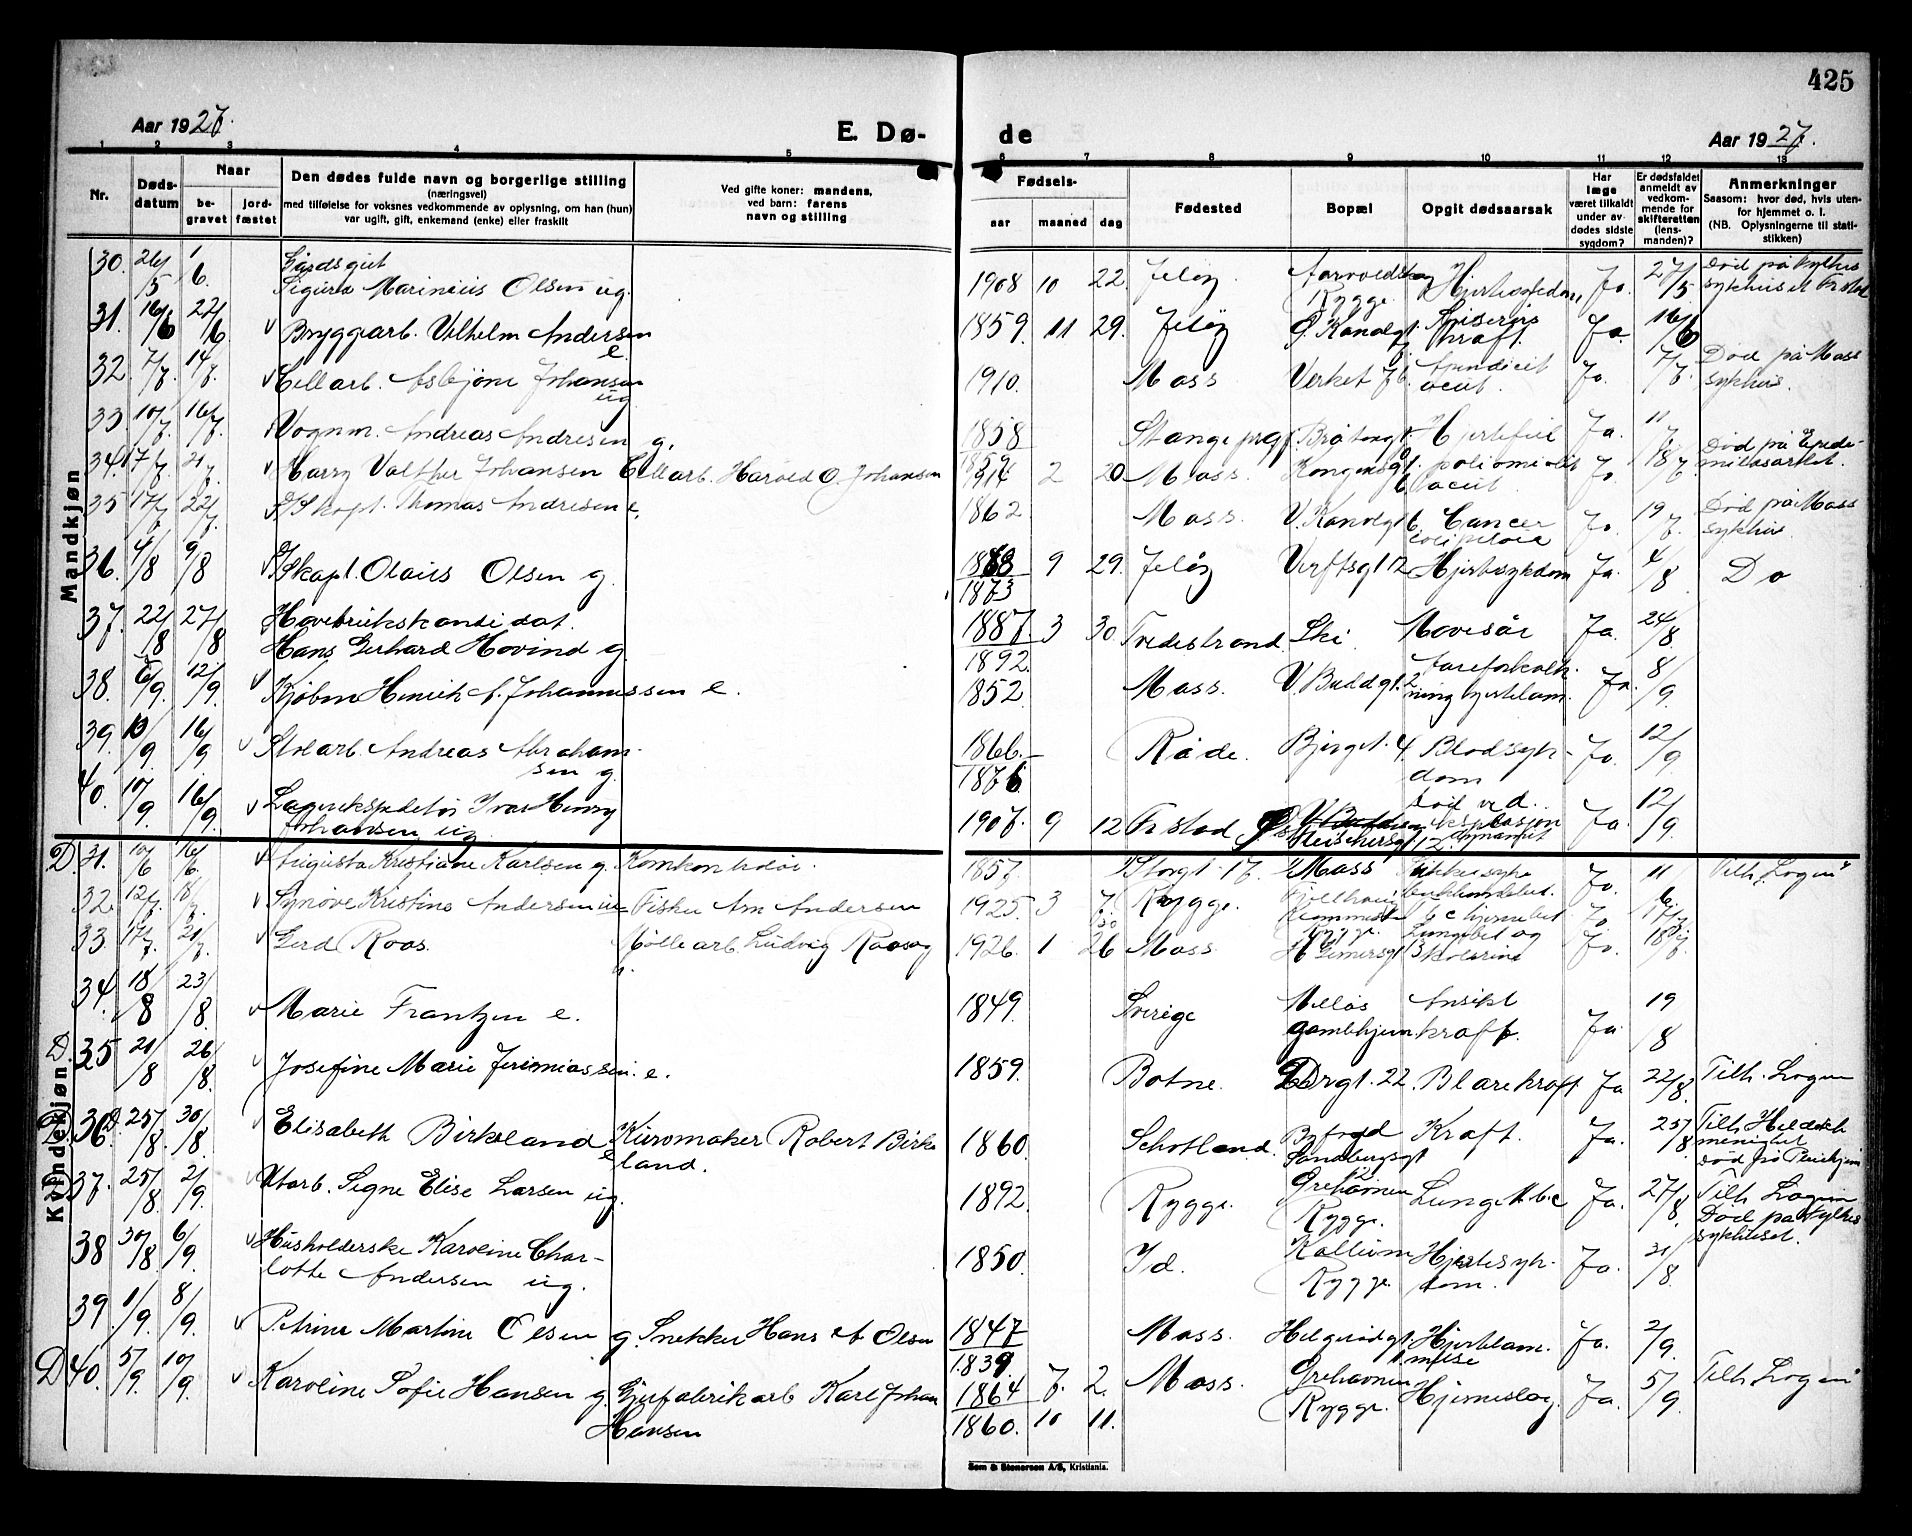 425
Aar 1927.
E. Dø-
de
Aar 1927.
1 2 3 4 5 6 7 8 9 10 11 12 13
Nr.
Døds-
datum
Naar
be-
gravet
jord-
fæstet
Den dødes fulde navn og borgerlige stilling
(næringsvei)
med tilføielse for voksnes vedkommende av oplysning, om han (hun)
var ugift, gift, enkemand (enke) eller fraskilt
Ved gifte koner: mandens,
ved barn: farens
navn og stilling
Fødsels-
aar
maaned
dag
Fødested
Bopæl
Opgit dødsaarsak
Har
læge
været tilkaldt
under av-
dødes sidste
sygdom?
Er dødsfaldet
anmeldt av
vedkom-
mende for
skifteretten
(lens-
manden)?
Anmerkninger
Saasom: hvor død, hvis uten-
for hjemmet o. l.
(NB. Oplysningerne til stati-
stikken)
Mandkjøn
30. 26/5 1/6 Gårdsgut
Sigurd Marinius Olsen ug. 1908 10 22. Jeløy. Rygge. Ja. 27/5 Død på Fylkes
sykhuset Frstad
31. 16/6 22/6 Bryggearb. Vilhelm Andersen
e. 1859. 11 29. Jeløy Ø. Kanalgt. Spiserørs
kraft. Ja 16/6
32. 7/7. 14/7. Cellarb. Asbjørn Johansen
ug 1910. Moss Verket 76. Apendicit
acut. Ja. 7/7. Død på Moss
sykhus.
33 10/7. 16/7. Vognm. Andreas Andresen g. 1858. 1859 Stange prgj. Hjertefeil Ja. 11/7.
34. 17/7 21/7. Harry Valther Johansen Cellarb. Harald O. Johansen 1914 2 20. Moss. Kongensgt. poliomielit
acut. Ja 18/7. Død på Epide-
milasaret.
35 17/7 22/7. Skapt. Thomas Andresen e. 1862. Moss. V. Kanalgt 6 Cancer Ja. 19/7. Død på Moss
sykhus.
36. 4/8 9/8 Skapt. Olaus Olsen g. 1868 1873 9 29. Jeløy Verftsgt 12 Hjertesykdom Ja. 4/8 Do
37. 22/8 27/8 Havebrukskandidat.
Hans Gerhard Hovind g. 1887. 1892. 3 30. Tvedestrand. Ski. Mavesår Ja. 24/8.
38. 12/9 Kjøbm Henrik A. Johannessen e. 1852. Moss. V. Buddgt. 2 Aareforkalk-
ning hjertelam. Ja. 8/9.
39. 10/9. 16/9 Andreas Abraham-
sen g. 1866. 1876 Råde. Bjergt. 4. Blodsyk-
dom Ja. 12/9
40. 10/9. 16/9. Lagerekspeditør Ivar Henry
Johansen ug. 1907. 9 12 Frstad Død ved
eksplosjon
dynamit Ja. 12/9.
Kvindekjøn
D. 31. 10/6 16/6. Augusta Kristiane Karlsen g. Komkontrolør. 1857. Storgt. 17. Moss Sukkersyke Ja. 11/6. Tilh. "Logen"
32. 12/7. 18/7. Synøve Kristine Andersen Fisker Arn Andersen 1925. 3 7 Rygge. Ja 14/7
33. 17/7. 21/7. Gerd Roos. Møllearb. Ludvig Roos og
1926. 1 26 Moss Lungebet og Ja. 18/7.
34. 18/8 23/8. Marie Frantzen e. 1849. Sverige Melløs
gamlehjem Ansikt
kraft. Ja 19/8
D. 35 21/8 26/8. Josefine Marie Jeremiassen. e. 1859. Botne. Drgt. 22. Blærekraft Ja 22/8. Tilh. Logen
D. 36. 25/8. 30/8. Elisabeth Birkeland e Kurvmaker Robert Birke
land. 1860. Schotland. Byfogd
Sandbergsgt
12 Kraft. Ja. 25/8 Tilh. menighet
Død på Pleiehjem
37. 25/8. 2/9. Utarb. Signe Elise Larsen ug. 1892. Rygge. Grehavnen
Rygge. Lunge tbc Ja. 27/8. Tilh Logen
Død på Fylkes
sykhuset.
38 30/8. 6/9. Husholderske Karoline Char-
lotte Andersen ug. 1850. Id. Kallum
Rygge. Hjertesyk-
dom. Ja. 31/8.
39 1/9. 8/9. Petrine Martine Olsen g. Snekker Hans A. Olsen 1847 1839. Moss. Helgerødgt. Hjertelam.
melse Ja. 2/9.
D 40. 5/9. 10/9. Karoline Sofie Hansen g. Gjufabrikarb Karl Johan
Hansen 1864 7. 2. 1860. 10 11. Moss. Grehavnen
Rygge. Hjerneslag. Ja. 5/9. Tilh "Logen"
Sem & Stenersen A/S, Kristiania.